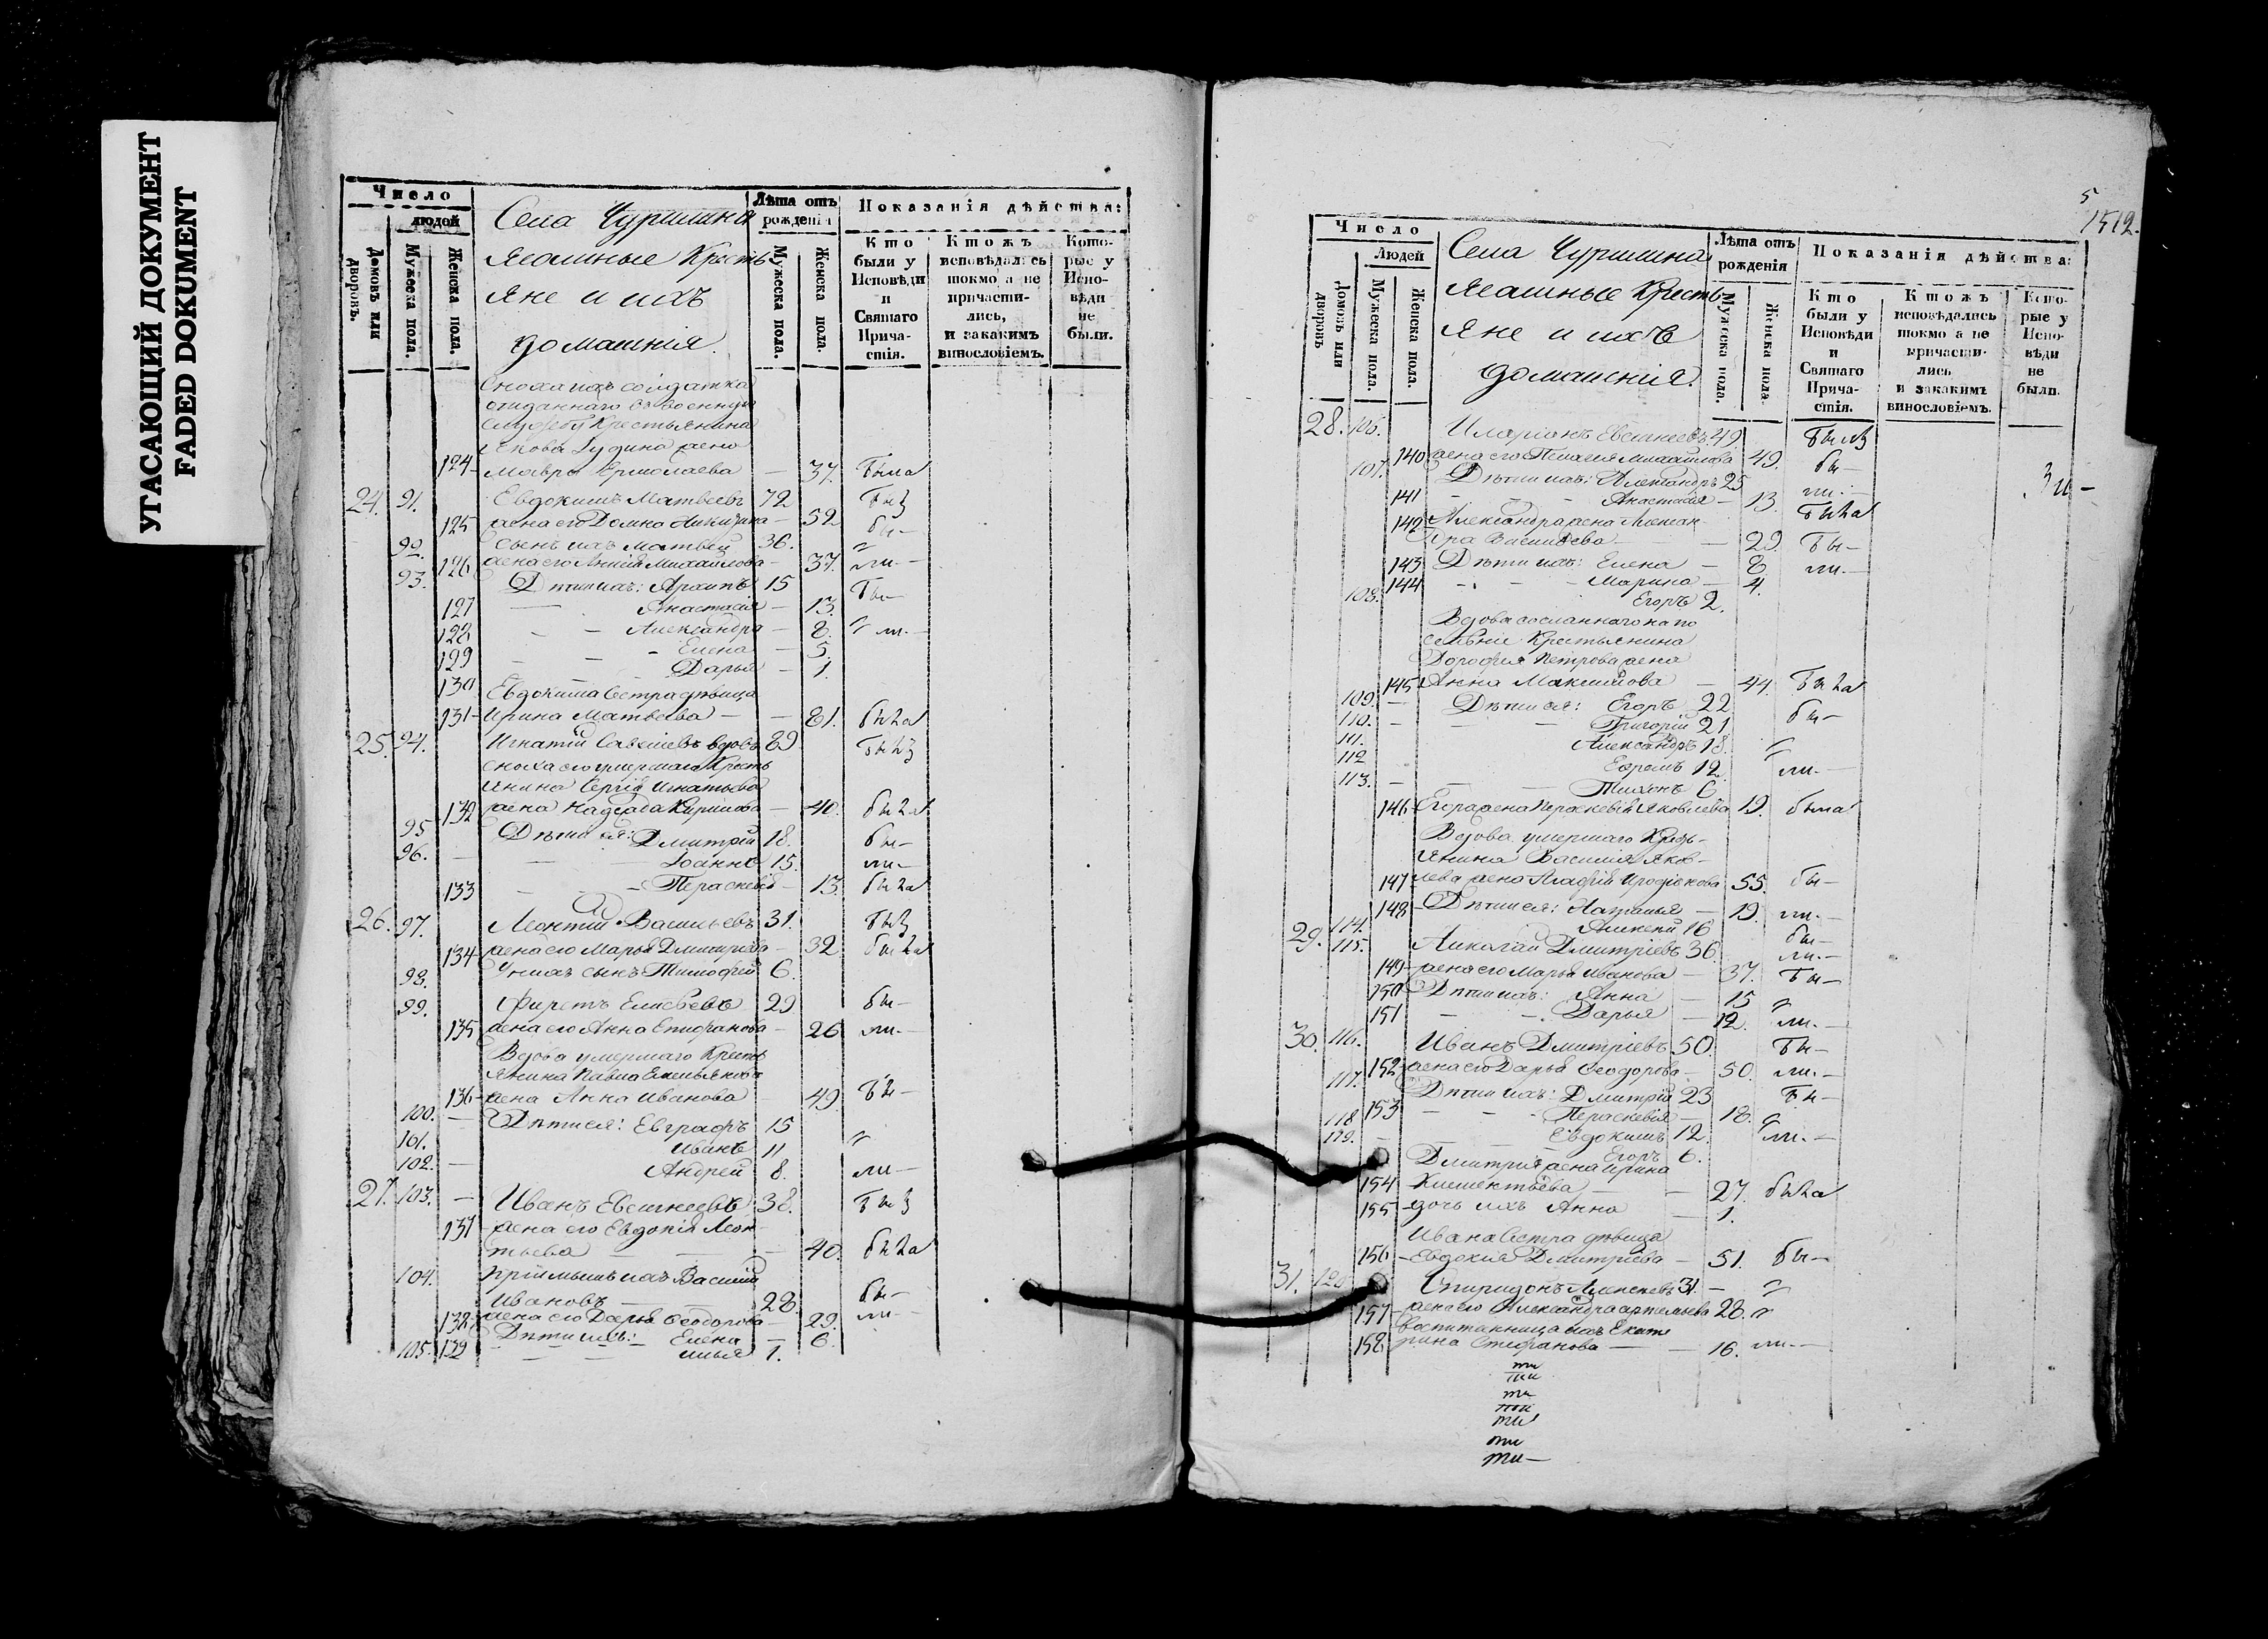 УГАСАЮЩИЙ ДОКУМЕНТ
FADED DOKUMENT
Число
людей
Домовъ или дворовъ.
Мужеска пола.
Женска пола.
Села Чуршина
Ясашные Кресть
яне и ихъ
домашнія.
Лѣта отъ рожденія
Мужеска пола.
Женска пола.
Показанія дѣйства:
Кто были у Исповѣди и Святаго Причастія.
Ктожъ исповѣдались токмо а не причастились, и закакимъ винословіемъ.
Которые у Исповѣди не были.
Сноха ихъ солдатка
отданнаго въ военную
службу Крестьянина
жена
124 Мавра Ермолаева — 37. была
24. 91. Евдокимъ Матвеевъ 72
125 жена его Домна Никитина — 52 бы—
92. сынъ ихъ Матвей 36.
126 жена его Михаилова — 37. ли—
93. Дѣти ихъ: Архипъ 15 бы—
127 Анастасія — 13.
128 Александра — 8. ли.—
129 Елена — 5.
130 Дарья — 1.
Евдокима Сестра дѣвица
131 Ирина Матвеева — 81. была
25. 94. Игнатій Савельевъ вдовъ 89
Сноха его умершаго Кресть
янина Сергія Игнатьева
132 жена Кирилова — 40. была
95 Дѣти ея: Дмитрій 18. бы—
96. Іоаннъ 15. ли—
133 Параскевія — 13. была
26. 97. Леонтій Васильевъ 31.
134 жена его Марья Дмитріева — 32 была
98. Уних сынъ Тимофей 6.
99. Елисѣевъ 29 бы—
135 жена его Анна Епифанова — 26 ли.—
Вдова умершаго Кресть
янина Павла Емельянова
136 жена Анна Иванова 49. бы—
100. — Дѣти ея: Евграфъ 15
101. Иванъ 11
102. — Андрей 8. ли—
27. 103. — Иванъ Евсигнеевъ 38.
137 жена его Евдокія Леон
тьева — 40. была
104. пріимышъ ихъ Василій
Ивановъ — 28. бы—
138 жена его Дарья Ѳеодорова — 29. ли—
139 Дѣти ихъ: Елена — 6.
105. Илья 1.
5
1512.
Число
Людей
Домовъ или дворовъ
Мужеска пола.
Женска пола.
Села Чуршина
Ясашные Кресть
яне и ихъ
домашнія.
Лѣта отъ рожденія
Мужеска пола.
Женска пола.
Показанія дѣйства:
Кто были у Исповѣди и Святаго Причастія.
Ктожъ исповѣдались токмо а не причастились и закакимъ винословіемъ.
Которые у Исповѣди не были.
28. 106. Иларіонъ Евсигнеевъ 49. былъ
140 жена его Пелагея Михайлова 49. бы—
107. Дѣти ихъ: Александръ 25 ли.—
141 Анастасія — 13. была
142 Александра жена Алексан
дра Васильева — 29. бы—
143 Дѣти ихъ: Елена — 8 ли.—
144 Марина — 4.
108. Егоръ 2.
Вдова сосланнаго на по
селѣніе Крестьянина
Дорофея Петрова жена
145 Анна Максимова — 44. была
109. — Дѣти ея: Егоръ 22
110. — Григорій 21 бы—
111. Александръ 18.
112 Ефремъ 12. ли.—
113. — Тихонъ 6.
146 Егора жена Параскевія Яковлева 19. была
Вдова умершаго Кресть-
янина Василія Яков-
147 лева жена Агафія Иродіонова 55. бы—
148 Дѣти ея: Наталья — 19. ли.—
114. Алексѣй 16 бы—
29. 115. Николай Дмитріевъ 36. ли.—
149 жена его Марья Иванова — 37. бы—
150 Дѣти ихъ: Анна — 15
151 Дарья — 12. ли.—
30. 116. Иванъ Дмитріевъ 50. бы—
152 жена его Дарья Ѳеодорова — 50. ли.—
117. Дѣти ихъ: Дмитрій 23 бы—
153 Параскевія — 18.
118 Евдокимъ 12. ли.—
119. Егоръ 6.
Дмитрія жена Ирина
154 Климентьева — 27. была
155 дочь ихъ Анна — 1.
Ивана Сестра дѣвица
156 Евдокія Дмитріева — 51. бы—
31. 120 Спиридонъ Алексѣевъ 31. —
157 жена его Александра 28.
Воспитанница ихъ Екате
158 рина Стефанова — 16. ли.—